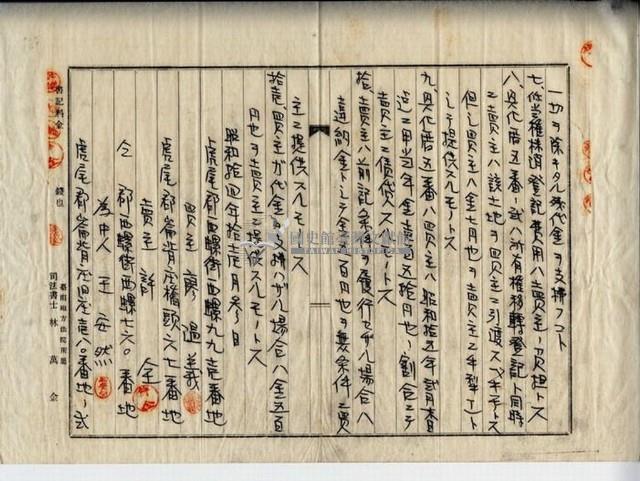 一切ヲ除キタル残代金ヲ支拂フコト
七、抵当権抹消登記費用ハ賣主ノ負担トス
八、ハ所有権移轉登記ト同時
ニ賣主ハ該土地ヲ買主ニ引渡スベキモノトス
但シ買主ハ金七円也ヲ賣主ニ
シテ提供スルモノトス
買主ハ昭和拾五年
ノ割合ニテ
賣主ニ賃貸スルモノトス
拾、賣主ハ前記条件ヲ履行セザル場合ハ
違納金トシテ金五百円也ヲ無条件ニ買
主ニ提供スルモノトス
拾壱、買主ガ代金ヲ支拂ハザル場合ハ金五百
円也ヲ賣主ニ提供スルモノトス
昭和拾四年拾壱月参日
虎尾郡西螺街西螺九九壱番地
買主 廖過義
虎尾郡崙背庄橋頭六七番地
賣主 許金
仝郡西螺街西螺七六〇番地
為中人 王安然
虎尾郡崙背庄八〇番地ノ弐
書記料金 錢也
臺南地方法院所屬
司法書士 林萬金
國史館臺灣文獻館
TAIWAN HISTORICA